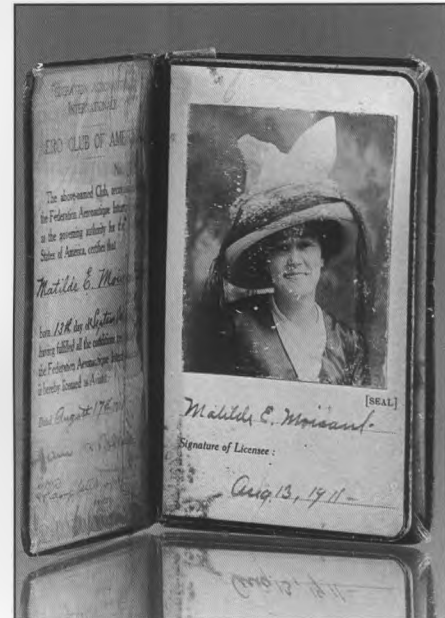 FÉDÉRATION AÉRONAUTIQUE
INTERNATIONALE
ERO CLUB OF AMERI
No.
The above-named Club, recog
the Federation Aeronautique Intern
as the governing authority for the
States of America, certifies that
Matilde E. Moisa
born 13th day of Septem
having fulfilled all the conditions
the Federation Aeronautique Intern
is hereby licensed as Aviator.
Dated August 17th, 191
[SEAL]
Matilde E. Moisant.
Signature of Licensee :
Aug. 13, 1911-